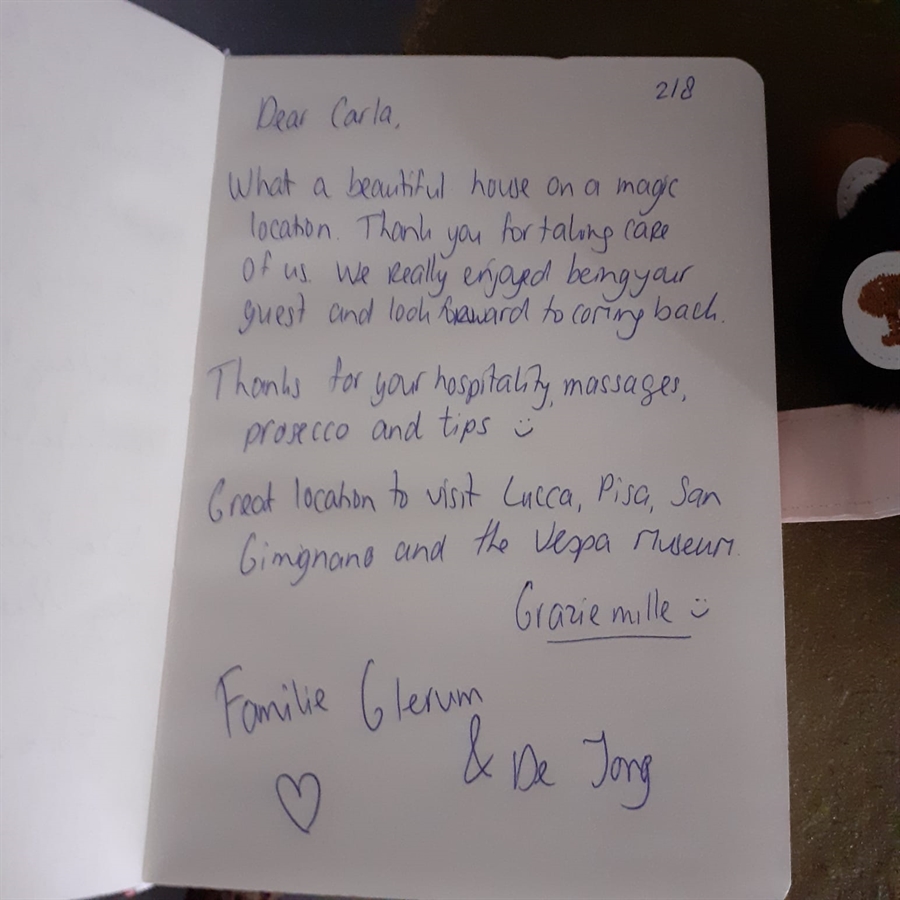 2/8
Dear Carla,
What a beautiful house on a magic
location. Thank you for taking care
of us. We really enjoyed being your
guest and look forward to coming back.
Thanks for your hospitality, massages,
prosecco and tips :)
Great location to visit Lucca, Pisa, San
Gimignano and the Vespa Museum.
Grazie mille :)
Familie Glerum
& De Jong
♡